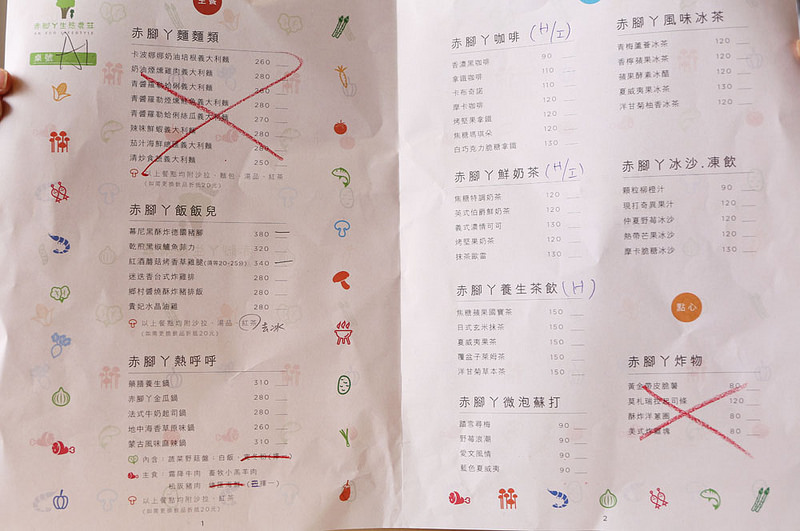 主食
赤腳丫生態農莊
桌號 A1
赤腳丫麵麵類
卡波娜娜奶油培根義大利麵 260
奶油燻雞肉義大利麵 280
青醬羅勒蛤蜊義大利麵 260
青醬羅勒燻鮭魚義大利麵 280
青醬羅勒蛤俐絲瓜義大利麵 270
辣味鮮蝦義大利麵 280
茄汁海鮮總匯義大利麵 280
清炒食蔬義大利麵 250
以上餐點均附沙拉、麵包、湯品、紅茶
(如需更換飲品折抵20元)
赤腳丫飯飯兒
慕尼黑酥炸德國豬腳 380
乾煎黑椒鱸魚菲力 320
紅酒蘑菇烤香草雞腿(須等20-25分) 340
迷迭香台式炸雞排 280
鄉村醬燒酥炸豬排飯 280
貴妃水晶油雞 280
以上餐點均附沙拉、湯品、紅茶 去冰
(如需更換飲品折抵20元)
赤腳丫熱呼呼
藥膳養生鍋 310
赤腳丫金瓜鍋 280
法式牛奶起司鍋 280
地中海香草原味鍋 260
蒙古風味麻辣鍋 310
內含：蔬菜野菇盤、白飯、
主食：霜降牛肉 畜牧小高羊肉
松阪豬肉 (三擇一)
以上餐點均附沙拉、紅茶
(如需更換飲品折抵20元)
1
赤腳丫咖啡 (H/I)
香濃黑咖啡 90
拿鐵咖啡 110
卡布奇諾 110
摩卡咖啡 120
烤堅果拿鐵 120
焦糖瑪琪朵 120
白巧克力脆糖拿鐵 130
赤腳丫鮮奶茶 (H/I)
焦糖特調奶茶 120
英式伯爵鮮奶茶 120
義式濃情可可 130
烤堅果奶茶 120
抹茶歐蕾 130
赤腳丫養生茶飲 (H)
焦糖蘋果國寶茶 150
日式玄米抹茶 150
夏威夷果茶 150
覆盆子萊姆茶 150
洋甘菊草本茶 150
赤腳丫微泡蘇打
踏雪尋梅 90
野莓浪潮 90
愛文風情 90
藍色夏威夷 90
赤腳丫風味冰茶
青梅蘆薈冰茶 120
香檸蘋果冰茶 120
蘋果酵素冰醋 120
夏威夷果冰茶 130
洋甘菊柚香冰茶 120
赤腳丫冰沙.凍飲
顆粒柳橙汁 90
現打奇異果汁 120
仲夏野莓冰沙 120
熱帶芒果冰沙 120
摩卡脆糖冰沙 130
點心
赤腳丫炸物
黃金帶皮脆薯 80
莫札瑞拉起司條 120
酥炸洋蔥圈 80
美式炸雞塊 80
2